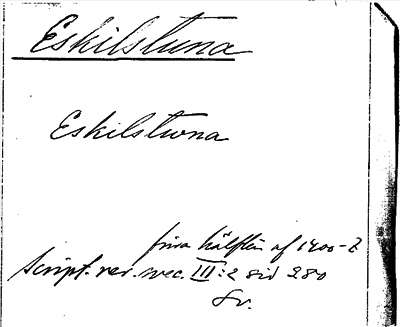 Eskilstuna
Eskilstwna
förra hälften af 1400-t
Script. rer. svec. III:2 sid 280
Sv.